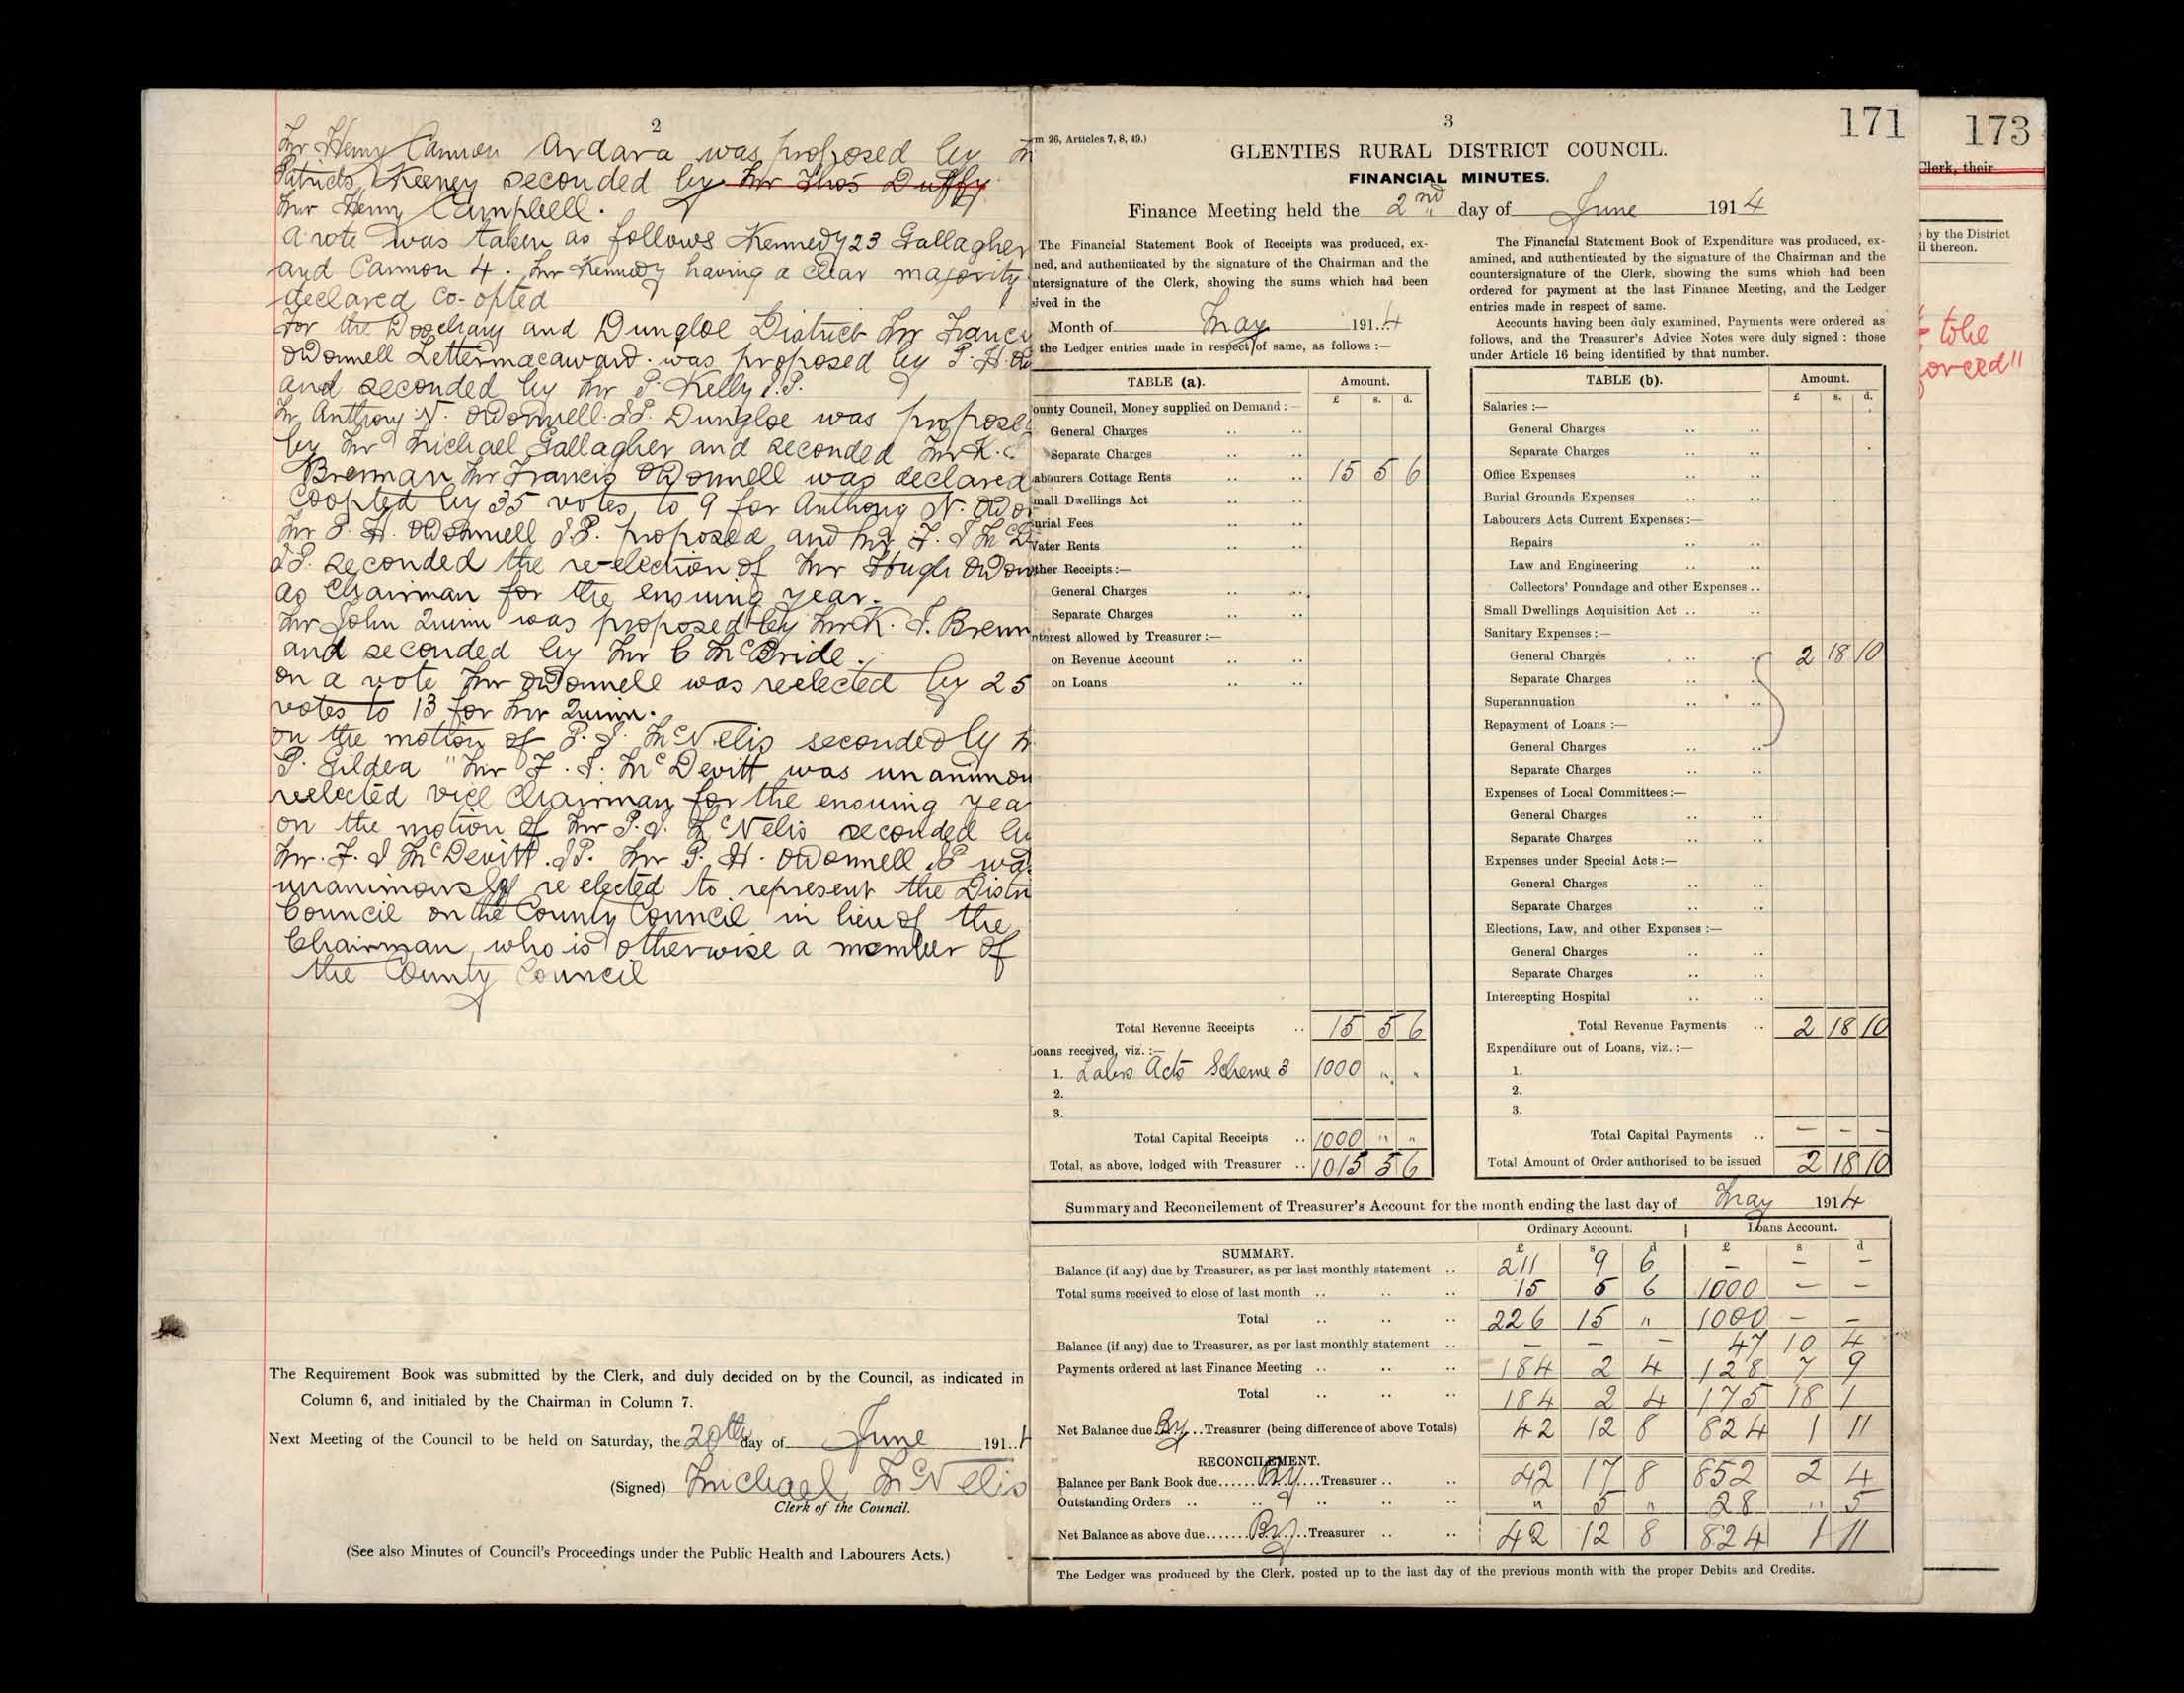 2
Mr Henry Cannon Ardara was proposed by
Patrick Keeney seconded by Mr Thos Duffy
Mr Henry Campbell.
A vote was taken as follows Kennedy 23 Gallagher
and Cannon 4. Mr Kennedy having a clear majority
declared co-opted
For the Doochary and Dungloe District Mr Franc
O'Donnell Lettermacaward was proposed by P. H. O'D
and seconded by Mr P. Kelly J.P.
Mr Anthony N. O'Donnell J.P. Dungloe was propose
by Mr Michael Gallagher and seconded Mr K. J.
Brennan Mr Francis O'Donnell was declared
coopted by 35 votes to 9 for Anthony N. O'Do
Mr P. H. O'Donnell J.P. proposed and Mr F. J McD
J.P. seconded the re-election of Mr Hugh O'Don
as Chairman for the ensuing year.
Mr John Quinn was proposed by Mr K. J. Brenn
and seconded by Mr C McBride.
on a vote Mr O'Donnell was reelected by 25
votes to 13 for Mr Quinn.
on the motion of P. J. McNelis seconded by
P. Gildea Mr F. J. McDevitt was unanimou
reelected vice Chairman for the ensuing yea
on the motion of Mr P. J. McNelis seconded by
Mr. F. J McDevitt. J.P. Mr P. H. O'Donnell J.P wa
unanimously re elected to represent the Distri
Council on the County Council in lieu of the
Chairman who is otherwise a member of
the County Council
The Requirement Book was submitted by the Clerk, and duly decided on by the Council, as indicated in
Column 6, and initialed by the Chairman in Column 7.
Next Meeting of the Council to be held on Saturday, the 20th day of June 191..4
(Signed) Michael McNelis
Clerk of the Council.
(See also Minutes of Council's Proceedings under the Public Health and Labourers Acts.)
3
171
m 26, Articles 7, 8, 49.)
GLENTIES RURAL DISTRICT COUNCIL.
FINANCIAL MINUTES.
Finance Meeting held the 2nd day of June 1914
The Financial Statement Book of Receipts was produced, ex-
ned, and authenticated by the signature of the Chairman and the
ntersignature of the Clerk, showing the sums which had been
ived in the
Month of May 191..4
the Ledger entries made in respect of same, as follows :—
TABLE (a). Amount.
£ s. d.
ounty Council, Money supplied on Demand :—
General Charges .. ..
Separate Charges .. ..
abourers Cottage Rents .. .. 15 5 6
mall Dwellings Act .. ..
urial Fees .. ..
Vater Rents .. ..
ther Receipts :—
General Charges .. ..
Separate Charges .. ..
nterest allowed by Treasurer :—
on Revenue Account .. ..
on Loans .. ..
Total Revenue Receipts .. 15 5 6
Loans received, viz. :—
1. Labrs Acts Scheme 3 1000 " "
2.
3.
Total Capital Receipts .. 1000 " "
Total, as above, lodged with Treasurer .. 1015 5 6
The Financial Statement Book of Expenditure was produced, ex-
amined, and authenticated by the signature of the Chairman and the
countersignature of the Clerk, showing the sums which had been
ordered for payment at the last Finance Meeting, and the Ledger
entries made in respect of same.
Accounts having been duly examined, Payments were ordered as
follows, and the Treasurer's Advice Notes were duly signed : those
under Article 16 being identified by that number.
TABLE (b). Amount.
£ s. d.
Salaries :—
General Charges .. ..
Separate Charges .. ..
Office Expenses .. ..
Burial Grounds Expenses .. ..
Labourers Acts Current Expenses:—
Repairs .. ..
Law and Engineering .. ..
Collectors' Poundage and other Expenses ..
Small Dwellings Acquisition Act .. ..
Sanitary Expenses :—
General Charges .. .. 2 18 10
Separate Charges .. ..
Superannuation .. ..
Repayment of Loans :—
General Charges .. ..
Separate Charges .. ..
Expenses of Local Committees:—
General Charges .. ..
Separate Charges .. ..
Expenses under Special Acts :—
General Charges .. ..
Separate Charges .. ..
Elections, Law, and other Expenses :—
General Charges .. ..
Separate Charges .. ..
Intercepting Hospital .. ..
Total Revenue Payments .. 2 18 10
Expenditure out of Loans, viz. :—
1.
2.
3.
Total Capital Payments .. — — —
Total Amount of Order authorised to be issued 2 18 10
Summary and Reconcilement of Treasurer's Account for the month ending the last day of May 1914
Ordinary Account. Loans Account.
£ s d £ s d
SUMMARY.
Balance (if any) due by Treasurer, as per last monthly statement .. 211 9 6 — — —
Total sums received to close of last month .. .. .. 15 5 6 1000 — —
Total .. .. .. 226 15 " 1000 — —
Balance (if any) due to Treasurer, as per last monthly statement .. — — — 47 10 4
Payments ordered at last Finance Meeting .. .. .. 184 2 4 128 7 9
Total .. .. .. 184 2 4 175 18 1
Net Balance due By..Treasurer (being difference of above Totals) 42 12 8 824 1 11
RECONCILEMENT.
Balance per Bank Book due......By....Treasurer .. .. 42 17 8 852 2 4
Outstanding Orders .. .. .. .. .. " 5 " 28 " 5
Net Balance as above due.......By....Treasurer .. .. 42 12 8 824 1 11
The Ledger was produced by the Clerk, posted up to the last day of the previous month with the proper Debits and Credits.
173
Clerk, their
by the District
il thereon.
to be
orced"